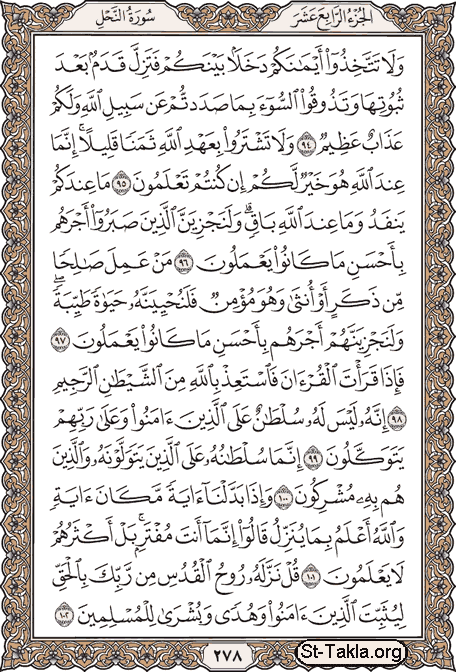 الجزء الرابع عشر
سورة النحل
وَلَا تَتَّخِذُوٓا۟ أَيْمَٰنَكُمْ دَخَلًۢا بَيْنَكُمْ فَتَزِلَّ قَدَمٌۢ بَعْدَ
ثُبُوتِهَا وَتَذُوقُوا۟ ٱلسُّوٓءَ بِمَا صَدَدتُّمْ عَن سَبِيلِ ٱللَّهِ وَلَكُمْ
عَذَابٌ عَظِيمٌ ٩٤ وَلَا تَشْتَرُوا۟ بِعَهْدِ ٱللَّهِ ثَمَنًا قَلِيلًا ۚ إِنَّمَا
عِندَ ٱللَّهِ هُوَ خَيْرٌ لَّكُمْ إِن كُنتُمْ تَعْلَمُونَ ٩٥ مَا عِندَكُمْ
يَنفَدُ وَمَا عِندَ ٱللَّهِ بَاقٍ ۗ وَلَنَجْزِيَنَّ ٱلَّذِينَ صَبَرُوٓا۟ أَجْرَهُم
بِأَحْسَنِ مَا كَانُوا۟ يَعْمَلُونَ ٩٦ مَنْ عَمِلَ صَٰلِحًا
مِّن ذَكَرٍ أَوْ أُنثَىٰ وَهُوَ مُؤْمِنٌ فَلَنُحْيِيَنَّهُۥ حَيَوٰةً طَيِّبَةً ۖ
وَلَنَجْزِيَنَّهُمْ أَجْرَهُم بِأَحْسَنِ مَا كَانُوا۟ يَعْمَلُونَ ٩٧
فَإِذَا قَرَأْتَ ٱلْقُرْءَانَ فَٱسْتَعِذْ بِٱللَّهِ مِنَ ٱلشَّيْطَٰنِ ٱلرَّجِيمِ
٩٨ إِنَّهُۥ لَيْسَ لَهُۥ سُلْطَٰنٌ عَلَى ٱلَّذِينَ ءَامَنُوا۟ وَعَلَىٰ رَبِّهِمْ
يَتَوَكَّلُونَ ٩٩ إِنَّمَا سُلْطَٰنُهُۥ عَلَى ٱلَّذِينَ يَتَوَلَّوْنَهُۥ وَٱلَّذِينَ
هُم بِهِۦ مُشْرِكُونَ ١٠٠ وَإِذَا بَدَّلْنَآ ءَايَةً مَّكَانَ ءَايَةٍ ۙ
وَٱللَّهُ أَعْلَمُ بِمَا يُنَزِّلُ قَالُوٓا۟ إِنَّمَآ أَنتَ مُفْتَرٍۭ ۚ بَلْ أَكْثَرُهُمْ
لَا يَعْلَمُونَ ١٠١ قُلْ نَزَّلَهُۥ رُوحُ ٱلْقُدُسِ مِن رَّبِّكَ بِٱلْحَقِّ
لِيُثَبِّتَ ٱلَّذِينَ ءَامَنُوا۟ وَهُدًى وَبُشْرَىٰ لِلْمُسْلِمِينَ ١٠٢
٢٧٨
St-Takla.org